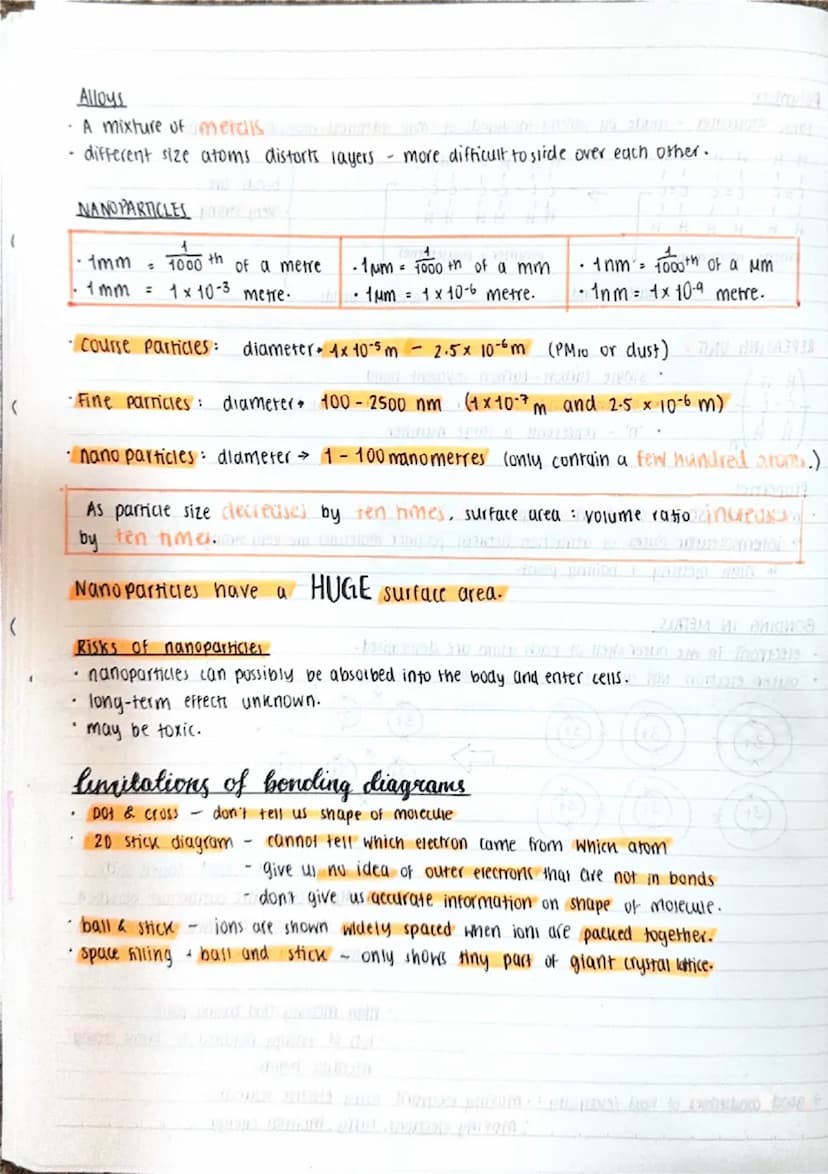 Alloys
· A mixture of metals
· different size atoms distorts layers - more difficult to slide over each other.
NANOPARTICLES
· 1mm = 1/1000 th of a metre
· 1mm = 1 x 10⁻³ metre.
· 1µm = 1/1000 th of a mm
· 1µm = 1 x 10⁻⁶ metre.
· 1nm = 1/1000th of a µm
· 1nm = 1x 10⁻⁹ metre.
· course particles: diameter → 1 x 10⁻⁵ m - 2.5 x 10⁻⁶ m (PM10 or dust)
· Fine particles: diameter → 100 - 2500 nm (1 x 10⁻⁷ m and 2.5 x 10⁻⁶ m)
· nano particles: diameter → 1 - 100 nanometres (only contain a few hundred atoms.)
As particle size decreases by ten times, surface area : volume ratio increases
by ten times.
Nanoparticles have a HUGE surface area.
Risks of nanoparticles
· nanoparticles can possibly be absorbed into the body and enter cells.
· long-term effects unknown.
· may be toxic.
limitations of bonding diagrams
· DOT & cross - don't tell us shape of molecule
· 2D stick diagram - cannot tell which electron came from which atom
- give us no idea of outer electrons that are not in bonds
- don't give us accurate information on shape of molecule.
· ball & stick - ions are shown widely spaced when ions are packed together.
· space filling + ball and stick - only shows tiny part of giant crystal lattice.